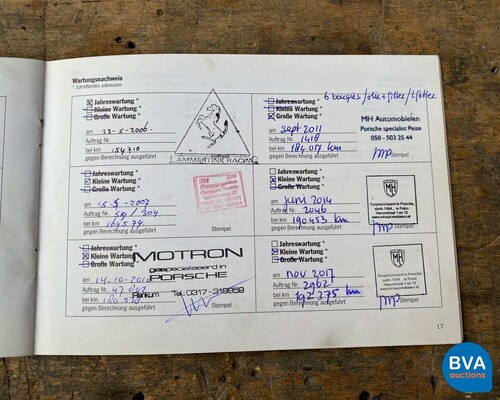 Wartungsnachweis
* Zutreffendes ankreuzen
Jahreswartung *
Kleine Wartung *
Große Wartung *
am 23-5-2006
Auftrag Nr.
bei km 154.710
gegen Berechnung ausgeführt
LAMMERTINK RACING
Jahreswartung *
Kleine Wartung *
Große Wartung *
am 15-5-2007
Auftrag Nr.
bei km 164574
gegen Berechnung ausgeführt
Stempel
Jahreswartung *
Kleine Wartung *
Große Wartung *
am 14-10-20
Auftrag Nr.
bei km
gegen Berechnung ausgeführt
MOTRON
gespecialiseerd in
PORSCHE
Renkum Tel: 0317-319959
Stempel
6 bougies / olie + filter / L filter
Jahreswartung *
Kleine Wartung *
Große Wartung *
am sept 2011
Auftrag Nr. 1410
bei km 184.017 km
gegen Berechnung ausgeführt
MH Automobielen
Porsche specialist Peize
050 - 503 25 44
Stempel
Jahreswartung *
Kleine Wartung *
Große Wartung *
am juni 2014
Auftrag Nr. 2046
bei km 190453 km
gegen Berechnung ausgeführt
MH
Gespecialiseerd in Porsche,
Stempel
Jahreswartung *
Kleine Wartung *
Große Wartung *
am nov 2017
Auftrag Nr. 2962
bei km 192375 km
gegen Berechnung ausgeführt
MH
Gespecialiseerd in Porsche,
Stempel
17
BVA
auctions